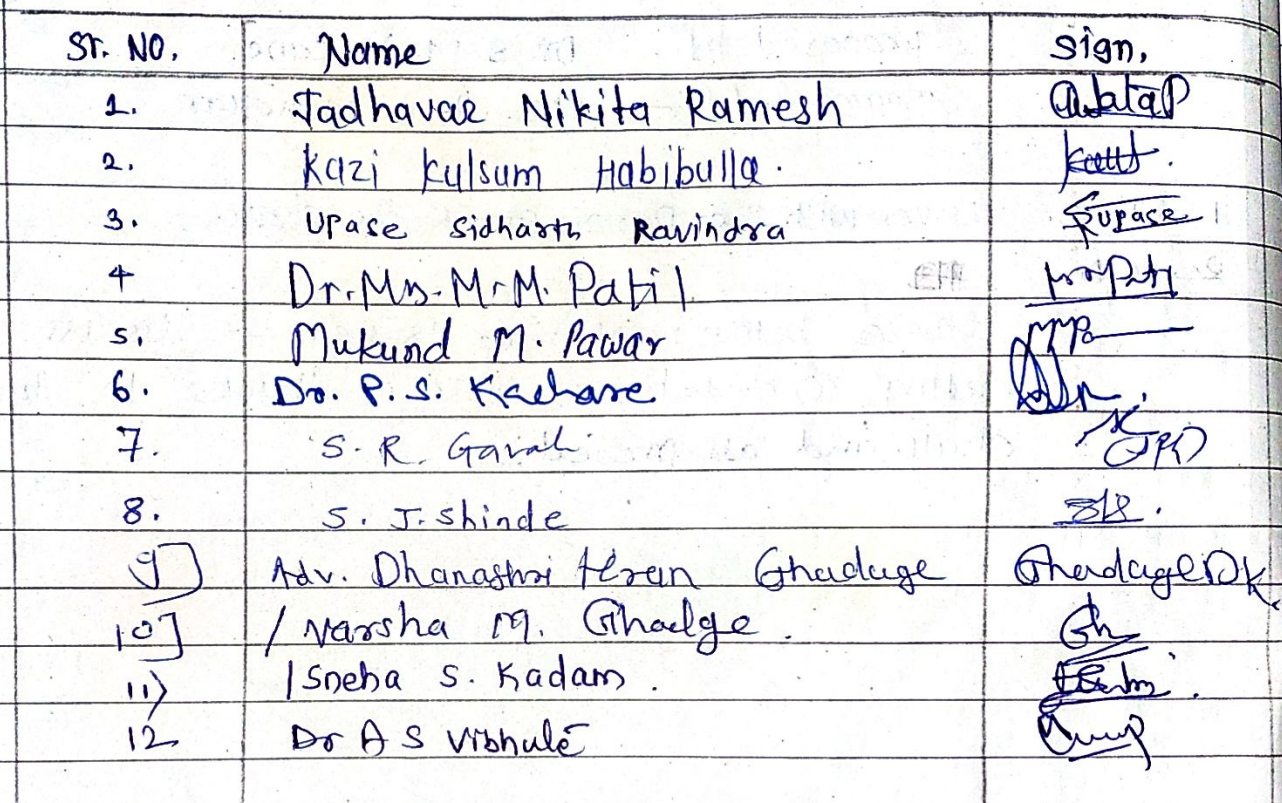 Sr. NO. Name Sign.
1. Jadhavar Nikita Ramesh
2. Kazi Kulsum Habibulla.
3. Upase Sidharth Ravindra Supase
4 Dr. Mrs. M. M. Patil
5. Mukund M. Pawar
6. Dr. P. S. Kachare
7. S. R.
8. S. J. Shinde
9] Adv. Dhanashri Ghaduge Ghadage DK.
10] / Varsha M. Ghadge.
11) / Sneha S. Kadam.
12 Dr A S Vibhute